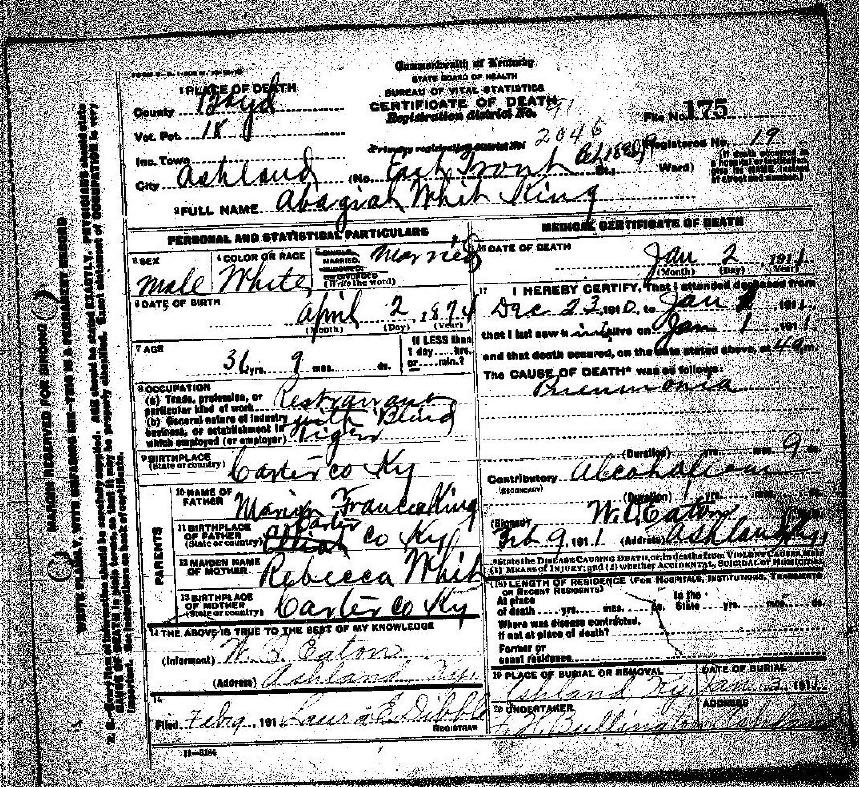 Commonwealth of Kentucky
STATE BOARD OF HEALTH
BUREAU OF VITAL STATISTICS
CERTIFICATE OF DEATH
1 PLACE OF DEATH
County Boyd
Vot. Pct. 18
Registration district No. 91
File No. 175
Primary registration district No. 2046
Registered No. 19
Inc. Town
City Ashland (No. East Front St., Ward)
2 FULL NAME Abagiah Whit King
PERSONAL AND STATISTICAL PARTICULARS
3 SEX Male
4 COLOR OR RACE White
5 SINGLE, MARRIED, WIDOWED OR DIVORCED (Write the word) Married
6 DATE OF BIRTH April 2, 1874
(Month) (Day) (Year)
7 AGE 36 yrs. 9 mos. ds.
If LESS than 1 day hrs. or min.?
8 OCCUPATION
(a) Trade, profession, or particular kind of work Restraurant
(b) General nature of industry business, or establishment in which employed (or employer) with Blind Tiger
9 BIRTHPLACE (State or country) Carter co Ky
PARENTS
10 NAME OF FATHER Marion Francis King
11 BIRTHPLACE OF FATHER (State or country) Carter co Ky
12 MAIDEN NAME OF MOTHER Rebecca Whit
13 BIRTHPLACE OF MOTHER (State or country) Carter co Ky
14 THE ABOVE IS TRUE TO THE BEST OF MY KNOWLEDGE
(Informant) W. S. Eaton
(Address) Ashland Ky.
Filed Feb 9, 191 Laura E. Dibble
REGISTRAR
11-5184
MEDICAL CERTIFICATE OF DEATH
16 DATE OF DEATH
Jan 2 1911
(Month) (Day) (Year)
17 I HEREBY CERTIFY, That I attended deceased from
Dec 23, 1910, to Jan 1911,
that I last saw him alive on Jan 1 1911
and that death occurred, on the date stated above, at 4 a m.
The CAUSE OF DEATH* was as follows:
Pneumonia
(Duration) mos. 9 ds.
Contributory Alcoholism
(SECONDARY)
(Duration) yrs. mos. ds.
(Signed) W. S. Eaton
Feb 9, 1911 (Address) Ashland Ky
*State the DISEASE CAUSING DEATH, or, in deaths from VIOLENT CAUSES, state
(1) MEANS OF INJURY; and (2) whether ACCIDENTAL, SUICIDAL OR HOMICIDAL
18 LENGTH OF RESIDENCE (FOR HOSPITALS, INSTITUTIONS, TRANSIENTS OR RECENT RESIDENTS)
At place of death yrs. mos. ds. In the State yrs. mos. ds.
Where was disease contracted, if not at place of death?
Former or usual residence
19 PLACE OF BURIAL OR REMOVAL Ashland Ky
DATE OF BURIAL Jan 1911
20 UNDERTAKER Bullington
ADDRESS Ashland
MARGIN RESERVED FOR BINDING
WRITE PLAINLY, WITH UNFADING INK—THIS IS A PERMANENT RECORD